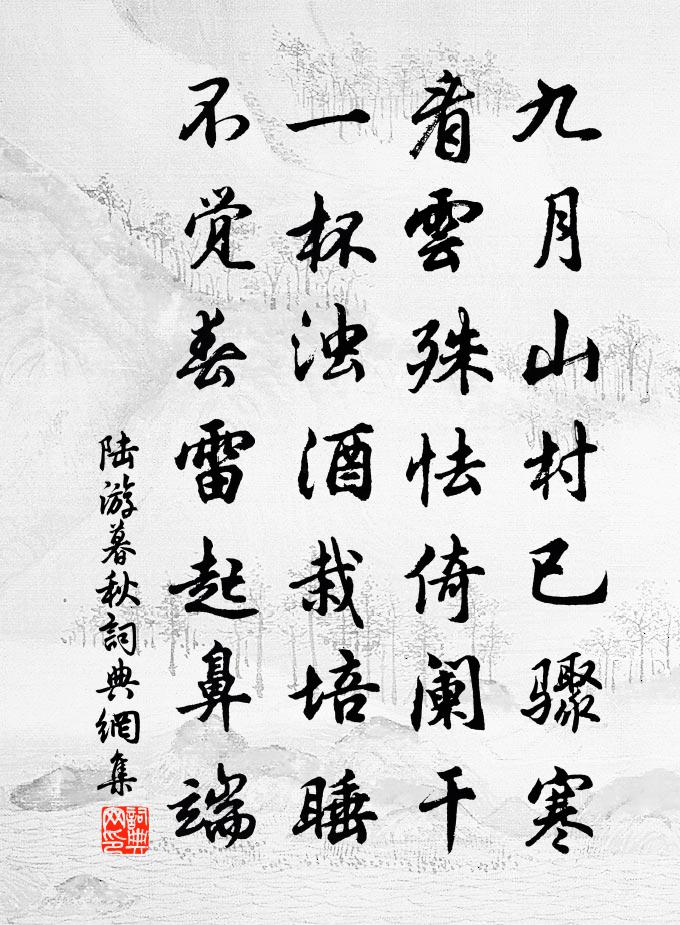 九月山村已骤寒
看雲殊怯倚阑干
一杯浊酒栽培睡
不觉春雷起鼻端
陆游暮秋詞典網集
詞典網印